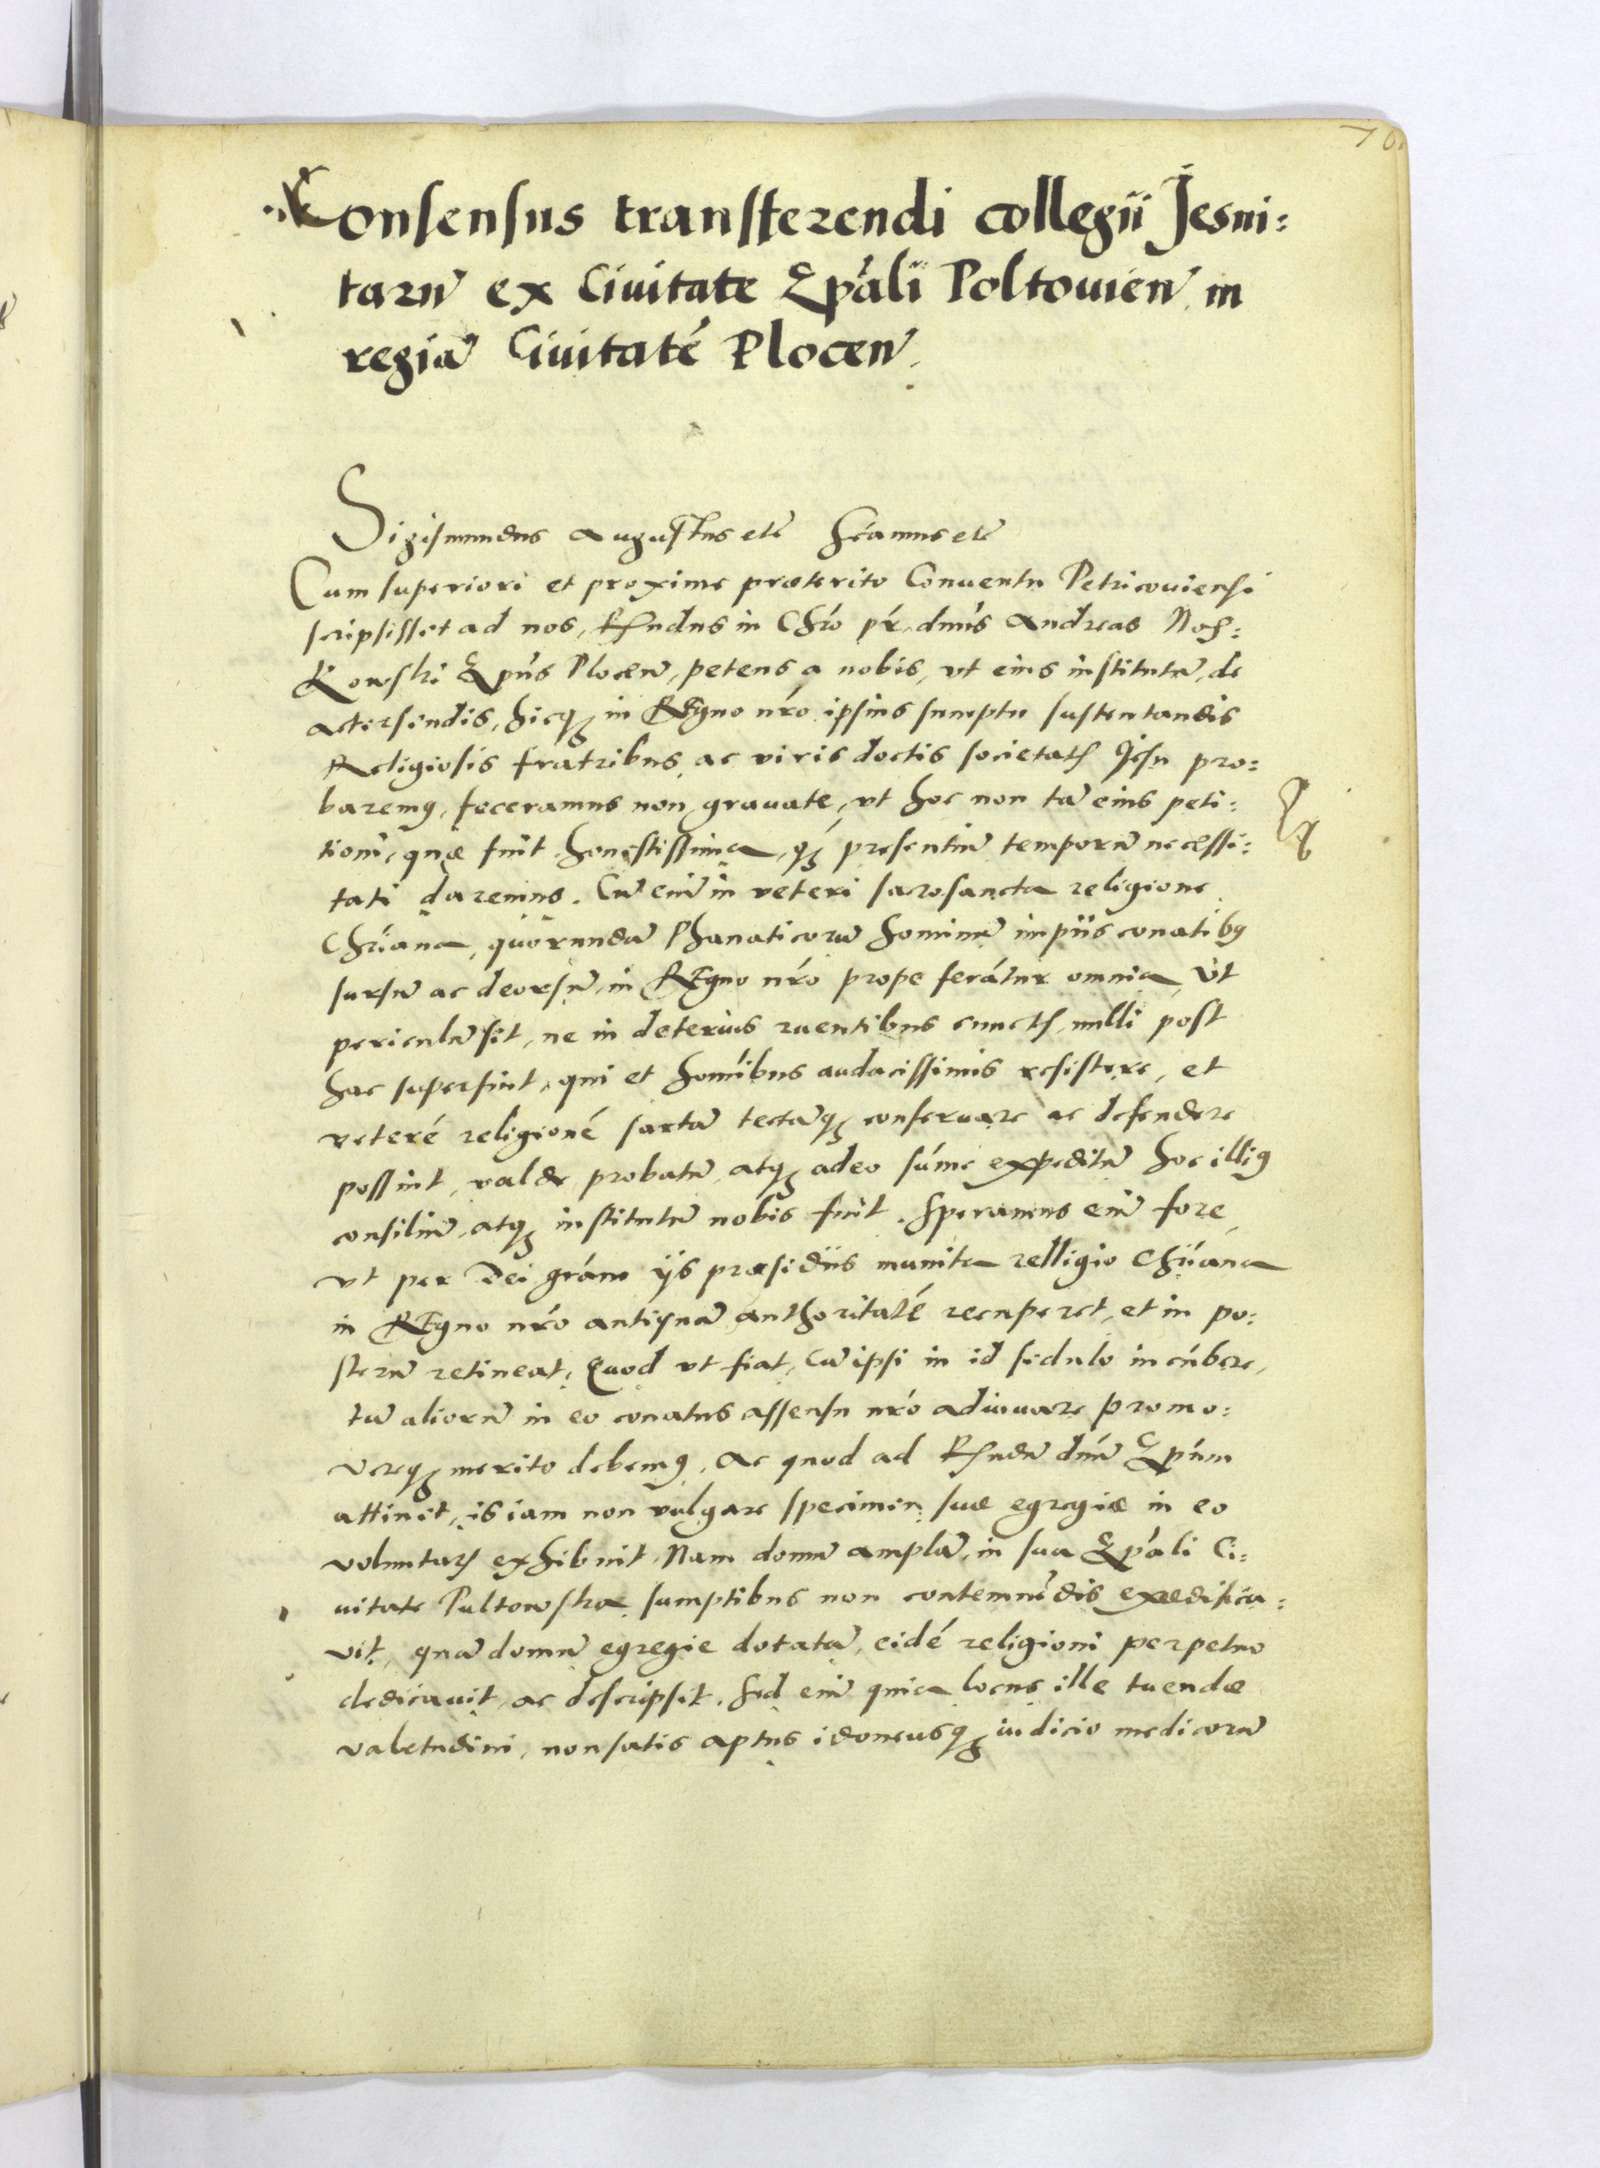 70
Consensus transferendi collegii Jesui:
tarū ex Ciuitate Ep̄ali Poltouien̄ in
regiā Ciuitatē Plocen̄.
Sigismundus Augustus etc̄ sc̄amus etc̄
Cum superiori et proxime præterito Conuentu Petricouiensi
scripsisset ad nos, Rn̄dus in Chr̄o pr̄. dn̄us Andreas Nos:
kowski Ep̄us Plocen̄, petens a nobis, vt eius institutū, de
accersendis, hicq; in Regno nr̄o ipsius sumptu sustentandis
Religiosis fratribus, ac viris doctis societatis Jesu pro:
baremus, feceramus non grauate, vt hoc non tā eius peti:
tioni, quæ fuit honestissima, q̄; presentiū temporū necessi:
tati daremus. Cū eni̅ in veteri sacrosancta religione
Chr̄iana, quorundā Phanaticorū hominū impiis conatibus
sursū ac deorsū, in Regno nr̄o prope ferātur omnia, Vt
periculū sit, ne in deterius ruentibus cunctis, nulli post
hac supersint, qui et homi̅bus audacissimis resistere, et
veterē religionē sartā tectāq; conseruare ac defendere
possint, valde probatū, atq; adeo sūme expeditū hoc illius
consiliū, atq; institutū nobis fuit. Speramus eni̅ fore,
vt per Dei grām ijs præsidiis munita relligio Chr̄iana
in Regno nr̄o antiquā authoritatē recuperet, et in po:
sterū retineat. Quod vt fiat, cū ipsi in id sedulo incūbere,
tū aliorū in eo conatus assensu nr̄o adiuuare promo:
uereq; merito debemus. Ac quod ad Rn̄dū dn̄ū Ep̄um
attinet, is iam non vulgare specimen suæ egregiæ in eo
voluntatis exhibuit. Nam domū amplā, in sua Ep̄ali Ci:
uitate Pultowska sumptibus non contemnēdis exædifica:
vit, quā domū egregie dotatā, eidē religioni perpetuo
dedicauit, ac descripsit. Sed eni̅ quia locus ille tuendæ
valetudini, non satis aptus idoneusq; iudicio medicorū